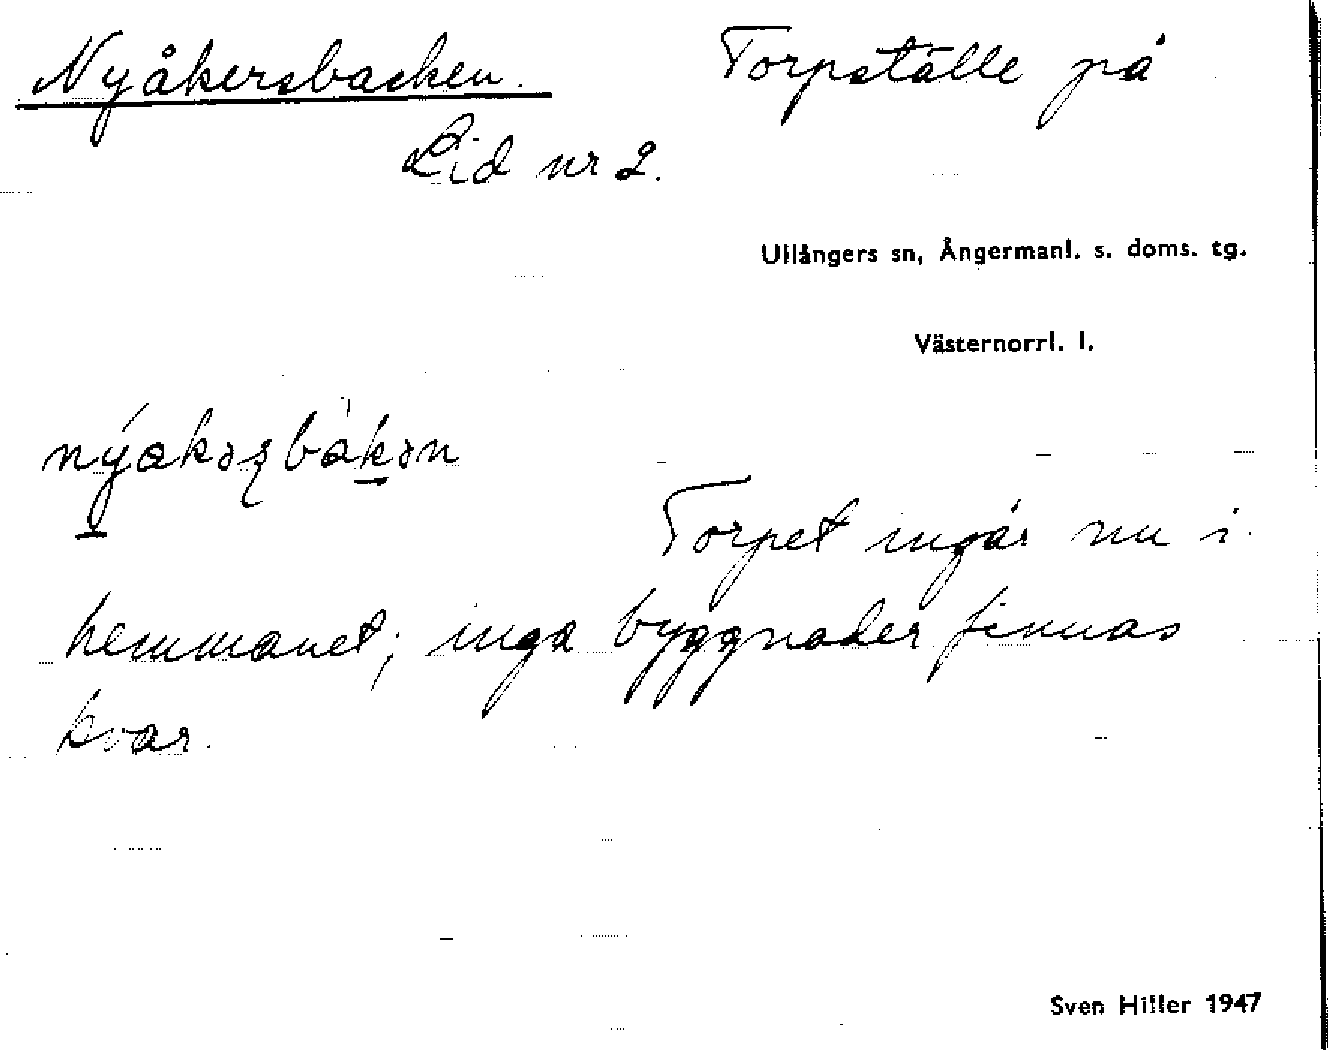 Nyåkersbacken. Torpställe på
Lid nr 2.
Ullångers sn, Ångermanl. s. doms. tg.
Västernorrl. l.
Torpet ingår nu i
hemmanet; inga byggnader finnas
kvar.
Sven Hiller 1947